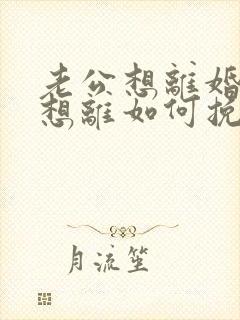 老公想離婚
想離如何挽
月流笙